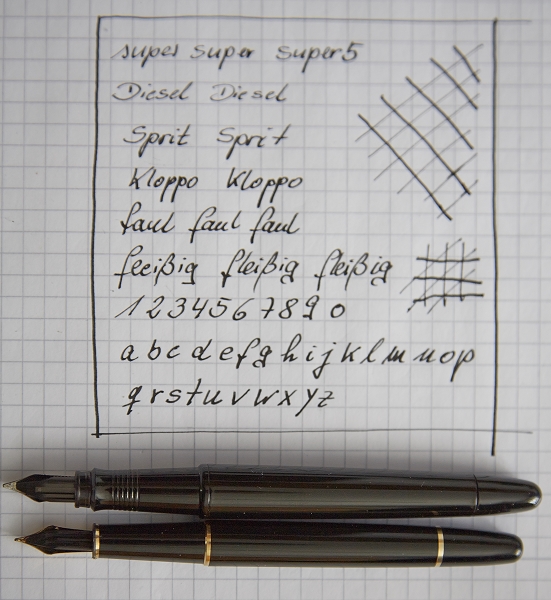 super super super5
Diesel Diesel
Sprit Sprit
Kloppo Kloppo
faul faul faul
fleißig fleißig fleißig
1 2 3 4 5 6 7 8 9 0
a b c d e f g h i j k l m n o p
q r s t u v w x y z